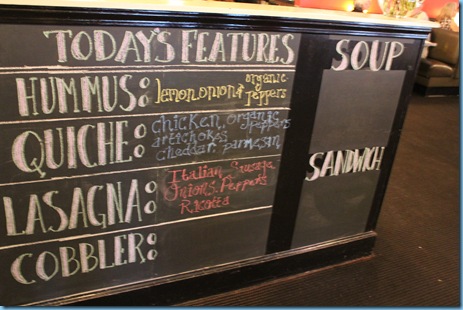 TODAY'S FEATURES
HUMMUS: lemon, onion & organic peppers
QUICHE: chicken, organic peppers
artichokes
cheddar, parmesan
LASAGNA: Italian Sausage
Onions, Peppers
Ricotta
COBBLER:
SOUP
SANDWICH